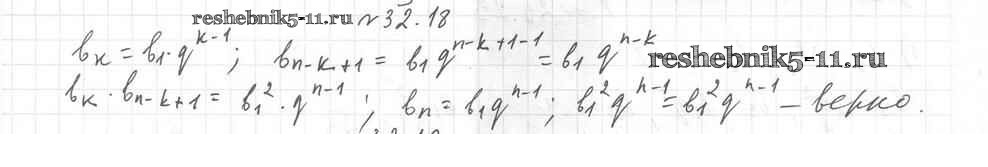 reshebnik5-11.ru №32.18
bₖ = b₁·qᵏ⁻¹; bₙ₋ₖ₊₁ = b₁qⁿ⁻ᵏ⁺¹⁻¹ = b₁qⁿ⁻ᵏ reshebnik5-11.ru
bₖ·bₙ₋ₖ₊₁ = b₁²·qⁿ⁻¹; bₙ = b₁qⁿ⁻¹; b₁²qⁿ⁻¹ = b₁²qⁿ⁻¹ – верно.